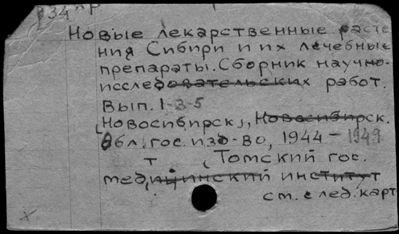 834 пр
Новые лекарственные расте
ния Сибири и их лечебные
препараты. Сборник научно-
исследовательских работ.
Вып. 1-3-5
(Новосибирск), Новосибирск.
обл. гос. изд-во, 1944-1949
т (Томский гос.
медицинский институт
см. след. карт